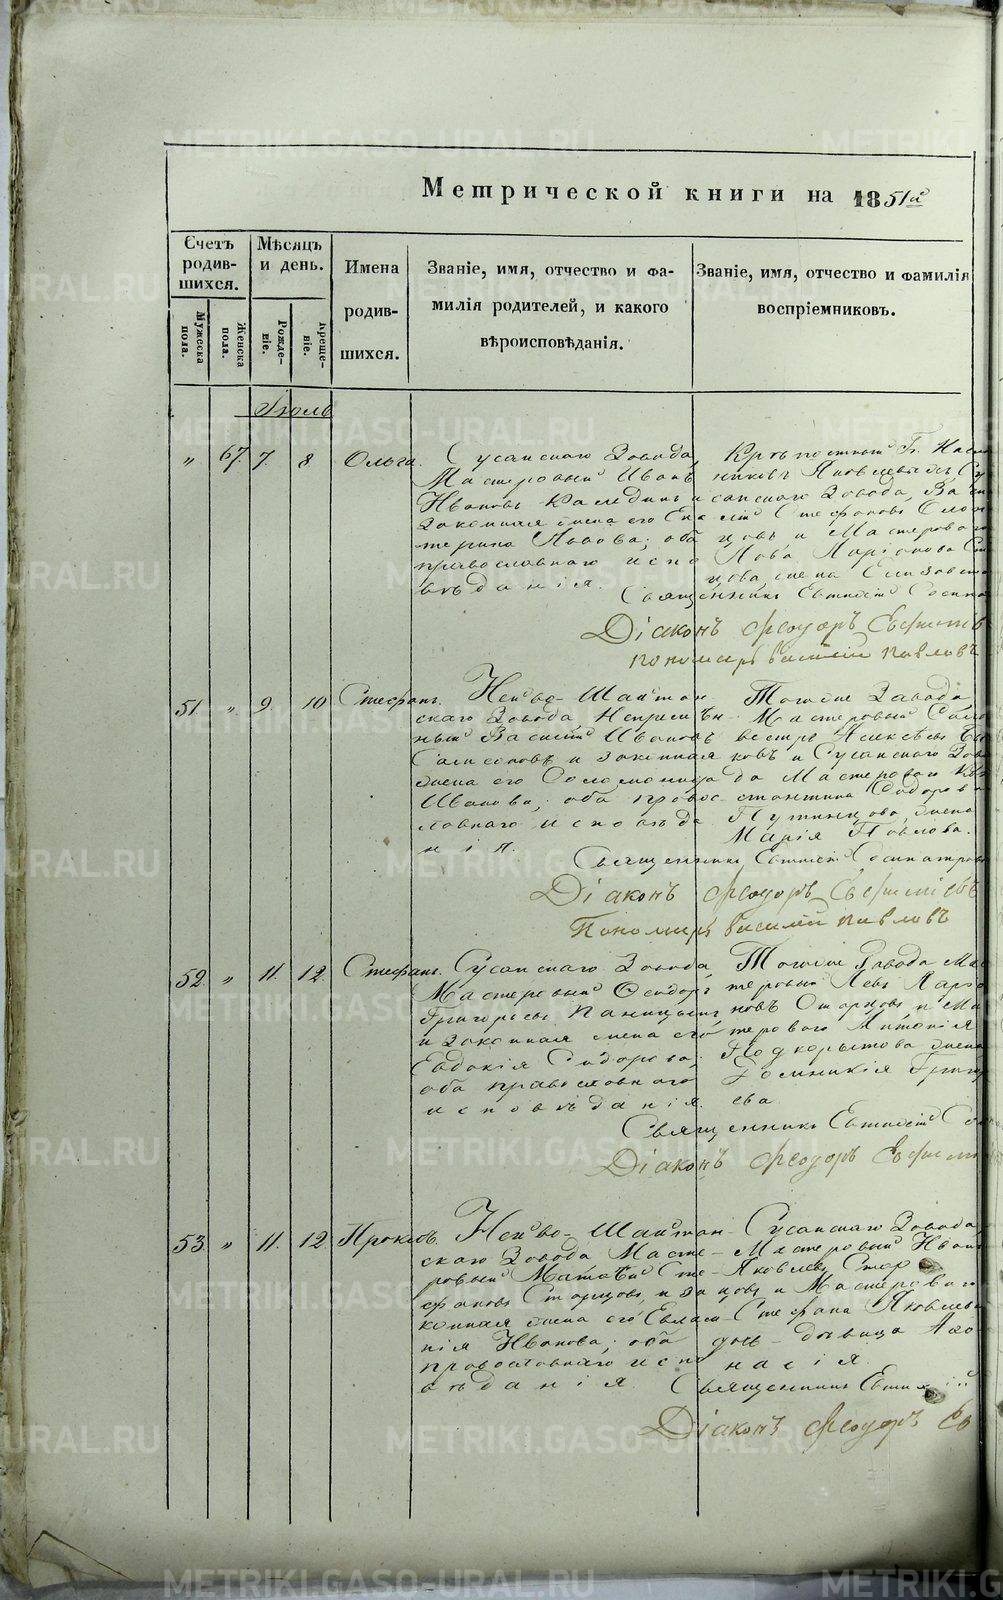 Метрической книги на 1851й
Счетъ родив-шихся.
Мѣсяцъ и день.
Имена родив-шихся.
Званіе, имя, отчество и фа-
милія родителей, и какого
вѣроисповѣданія.
Званіе, имя, отчество и фамилія
воспріемниковъ.
Мужеска пола.
Женска пола.
Рожде-ніе.
Креще-ніе.
Іюль
" 67. 7. 8. Ольга.
Сусанскаго Завода,
Мастеровый Иванъ
Ивановъ и
законная жена его Ека
терина Львова; оба
православнаго испо
вѣданія.
Крѣпостный Гн.
Яковлевыхъ Су
санскаго Завода, Ва
Стефановъ
цовъ и Мастероваго
Льва Ларіонова
цова жена Елизавета
Священникъ Евтихій Сосипа
Діаконъ Феодоръ Евфиміев
пономарь Василій Павловъ
51. " 9. 10. Стефанъ.
Нейво-Шайтан
скаго Завода, Непремѣн
ный Василій Ивановъ
Самсоновъ и законная
жена его Соломонида
Иванова; оба правос
лавнаго исповѣда
нія.
Тогоже Завода
Мастеровый
вестръ Алексѣевъ
ковъ и Сусанскаго Заво
да Мастероваго Кон
стантина Сидорова
Путинцова, жена
Марія Павлова.
Священникъ Евтихій Сосипатров
Діаконъ Феодоръ Евфиміевъ
Пономарь Василій Павловъ
52. " 11. 12. Стефанъ.
Сусанскаго Завода,
Мастеровый Феодоръ
Григорьевъ Паницынъ
и законная жена его
Евдокія Сидорова;
оба православнаго
исповѣданія.
Тогоже Завода Мас
теровый Левъ Ларіо
новъ Старцовъ и Мас
тероваго Антонія
Подкорытова жена
Домникія Григор
ева.
Священникъ Евтихій Со
Діаконъ Феодоръ Евфими
53. " 11. 12. Проклъ.
Нейво-Шайтан
скаго Завода Масте
ровый Матѳій Сте
фановъ Старцовъ, и за
конная жена его Евлам
пія Иванова; оба
православнаго испо
вѣданія.
Сусанскаго Завода
Мастеровый Иванъ
Яковлевъ Стар
цовъ и Мастероваго
Стефана Яковлева
дочь - дѣвица Аѳа
насія.
Священникъ Евтихій
Діаконъ Феодоръ Ев
METRIKI.GASO-URAL.RU